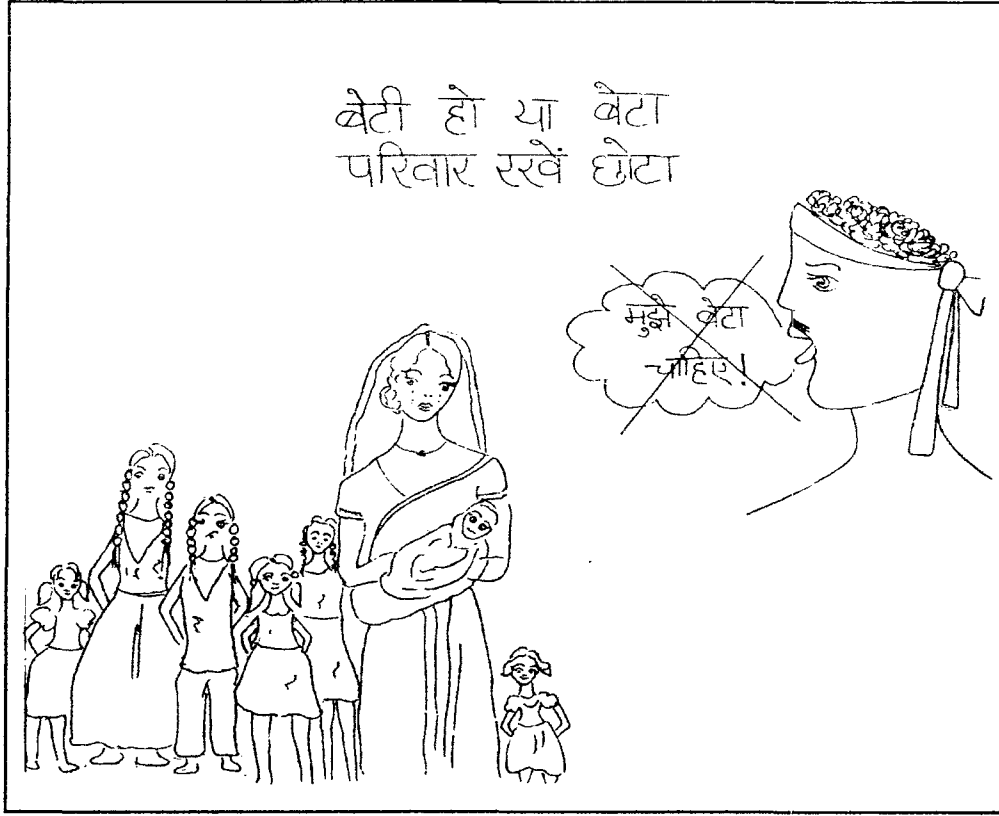 बेटी हो या बेटा
परिवार रखें छोटा
मुझे बेटा
चाहिए!